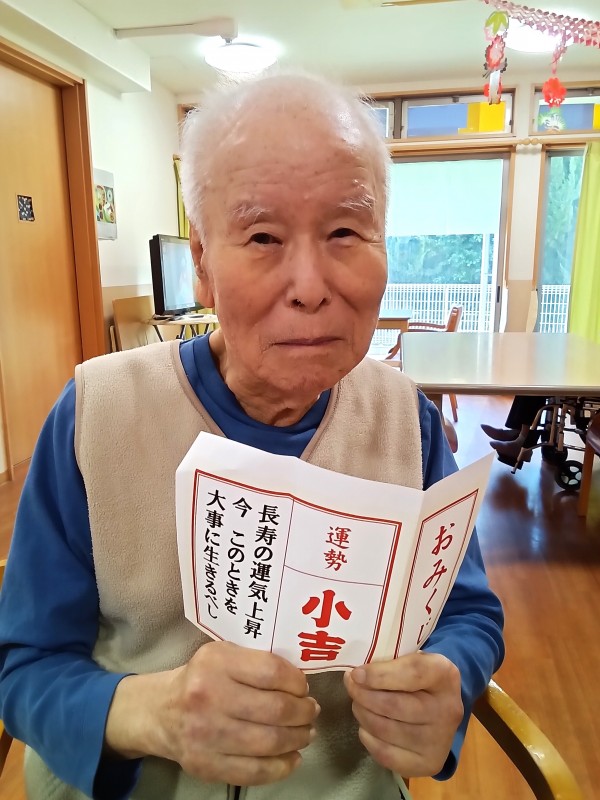 おみくじ
運勢
小吉
長寿の運気上昇
今 このときを
大事に生きるべし